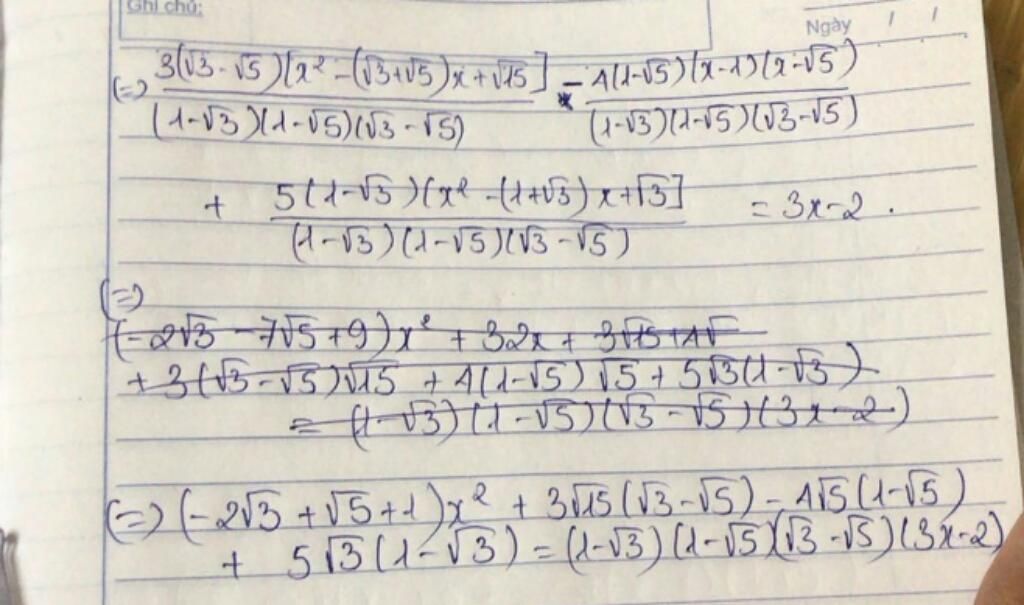 Ghi chú:
Ngày / /
(=) 3(√3 - √5)[x² - (√3+√5)x + √15] / (1-√3)(1-√5)(√3-√5) - 4(1-√5)(x-1)(x-√5) / (1-√3)(1-√5)(√3-√5)
+ 5(1-√3)(x² - (1+√3)x + √3] / (1-√3)(1-√5)(√3-√5) = 3x-2.
(=)
(-2√3 - 7√5 + 9)x² + 32x + 3√15 + 4√
+ 3(√3 - √5)√15 + 4(1-√5)√5 + 5√3(1-√3)
= (1-√3)(1-√5)(√3-√5)(3x-2)
(=) (-2√3 + √5 + 1)x² + 3√15(√3-√5) - 4√5(1-√5)
+ 5√3(1-√3) = (1-√3)(1-√5)(√3-√5)(3x-2)